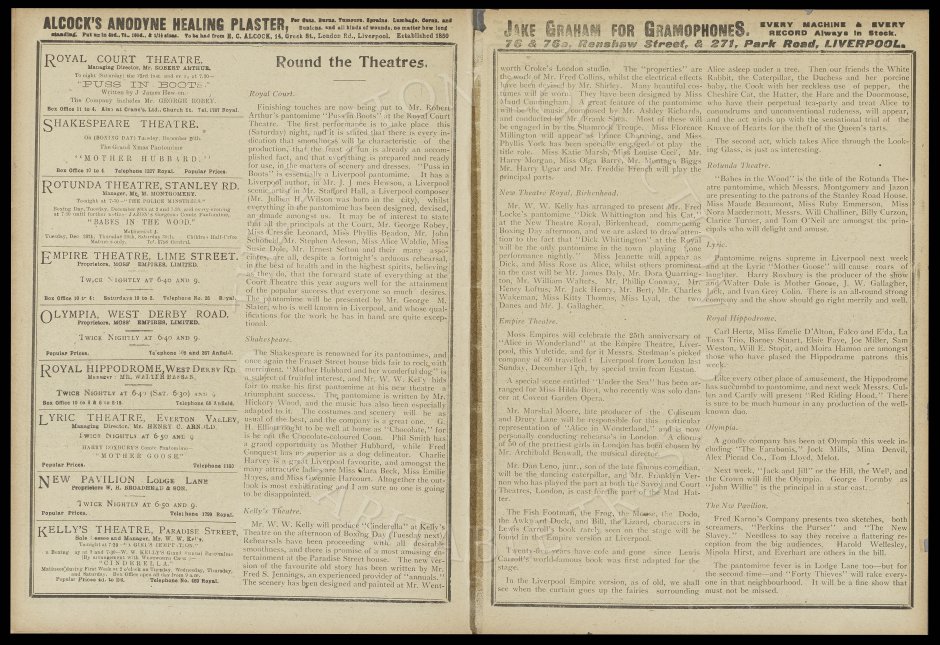 ALCOCK'S ANODYNE HEALING PLASTER, For Cuts, Burns, Tumours, Sprains, Lumbago, Corns, and
Bunions, and all kinds of wounds, no matter how long
standing. To be had from E. C. ALCOCK, 14, Greek St., London Rd., Liverpool. Established 1850
ROYAL COURT THEATRE.
Managing Director, Mr. ROBERT ARTHUR.
"PUSS IN BOOTS."
Written by J. James Hewson.
The Company includes Mr. GEORGE ROBEY.
Box Office 11 to 4. Also at Crane's, Ltd., Church St. Tel. 1597 Royal.
SHAKESPEARE THEATRE.
On (BOXING DAY) Tuesday, December 26th,
The Grand Xmas Pantomime
"MOTHER HUBBARD."
Box Office 10 to 4. Telephone 1207 Royal. Popular Prices.
ROTUNDA THEATRE, STANLEY RD.
Manager, Mr. W. MONTGOMERY.
Tonight at 7-30—"THE POLICE MINSTRELS"
"BABES IN THE WOOD."
EMPIRE THEATRE, LIME STREET.
Proprietors, MOSS' EMPIRES, LIMITED.
TWICE NIGHTLY AT 6-40 AND 9.
Box Office 10 to 4: Saturdays 10 to 2. Telephone No. 25 Royal.
OLYMPIA, WEST DERBY ROAD.
Proprietors, MOSS' EMPIRES, LIMITED.
TWICE NIGHTLY AT 6-40 AND 9.
Popular Prices. Telephone and 267 Anfield.
ROYAL HIPPODROME, WEST DERBY RD.
TWICE NIGHTLY AT 6/40 (SAT. 6/30) AND 9
Box Office 10 to 4 & 6 to 8-15. Telephone 65 Anfield.
LYRIC THEATRE, EVERTON VALLEY,
Managing Director, Mr. HENRY C. ARNOLD.
TWICE NIGHTLY AT 6 50 AND 9
HARRY ROXBURY'S Comic Pantomime—
"MOTHER GOOSE"
Popular Prices. Telephone 1180
NEW PAVILION LODGE LANE
Proprietors W. H. BROADHEAD & SON.
TWICE NIGHTLY AT 6-50 AND 9.
Popular Prices. Telephone 1799 Royal.
KELLY'S THEATRE, PARADISE STREET,
Sole Lessee and Manager, Mr. W. W. Kelly.
"CINDERELLA."
Popular Prices 4d. to 2/6. Telephone No. 620 Royal.
Round the Theatres.
Royal Court.
Finishing touches are now being put to Mr. Robert
Arthur's pantomime "Puss in Boots" at the Royal Court
Theatre. The first performance is to take place this
(Saturday) night, and it is stated that there is every in-
dication that smoothness will be characteristic of the
production, that the feast of fun is already an accom-
plished fact, and that everything is prepared and ready
for use, in the matters of scenery and dresses. "Puss in
Boots" is essentially a Liverpool pantomime. It has a
Liverpool author, in Mr. J. James Hewson, a Liverpool
scenic artist in Mr. Stafford Hall, a Liverpool composer
(Mr. Julian H. Wilson was born in the city), whilst
everything in the pantomime has been designed, devised,
and made amongst us. It may be of interest to state
that all the principals at the Court, Mr. George Robey,
Miss Cressie Leonard, Miss Phyllis Beadon, Mr. John
Schofield, Mr. Stephen Adeson, Miss Alice Waldie, Miss
Susie Dole, Mr. Ernest Sefton and their many asso-
ciates, are all, despite a fortnight's arduous rehearsal,
in the best of health and in the highest spirits, believing
as they do, that the forward state of everything at the
Court Theatre this year augurs well for the attainment
of the popular success that everyone so much desires.
The pantomime will be presented by Mr. George M.
Slater, who is well known in Liverpool, and whose qual-
ifications for the work he has in hand are quite excep-
tional.
Shakespeare.
The Shakespeare is renowned for its pantomimes, and
once again the Fraser Street house bids fair to rock with
merriment. "Mother Hubbard and her wonderful dog," is
a subject of fruitful interest, and Mr. W. W. Kelly bids
fair to make his first pantomime at his new theatre a
triumphant success. The pantomime is written by Mr.
Hickory Wood, and the music has also been especially
adapted to it. The costumes and scenery will be as
usual of the best, and the company is a great one. G.
H. Elliott ought to be well at home as "Chocolate," for
is he not the Chocolate-coloured Coon. Phil Smith has
a grand opportunity as Mother Hubbard, while Fred
Conquest has no superior as a dog delineator. Charlie
Harvey is a great Liverpool favourite, and amongst the
many attractive ladies are Miss Clara Beck, Miss Emilie
Hayes, and Miss Gwennie Harcourt. Altogether the out-
look is most exhilarating and I am sure no one is going
to be disappointed.
Kelly's Theatre.
Mr. W. W. Kelly will produce "Cinderella" at Kelly's
Theatre on the afternoon of Boxing Day (Tuesday next).
Rehearsals have been proceeding with all desirable
smoothness, and there is promise of a most amusing en-
tertainment at the Paradise Street house. The new ver-
sion of the favourite old story has been written by Mr.
Fred S. Jennings, an experienced provider of "annuals."
The scenery has been designed and painted at Mr. Went-
JAKE GRAHAM FOR GRAMOPHONES. EVERY MACHINE & EVERY
RECORD Always in Stock.
76 & 76a, Renshaw Street, & 271, Park Road, LIVERPOOL.
worth Croke's London studio. The "properties" are
the work of Mr. Fred Collins, whilst the electrical effects
have been devised by Mr. Shirley. Many beautiful cos-
tumes will be worn. They have been designed by Miss
Maud Cunningham. A great feature of the pantomime
will be the music, composed by Mr. Ashley Richards,
and conducted by Mr. Frank Shea. Most of these will
be engaged in by the Shamrock Troupe. Miss Florence
Millington will appear as Prince Charming, and Miss
Phyllis York has been specially engaged to play the
title role. Miss Katie Marsh, Miss Louise Cecil, Mr.
Harry Morgan, Miss Olga Barry, Mr. Montaga Biggs
Mr. Harry Ugar and Mr. Freddie French will play the
principal parts.
New Theatre Royal, Birkenhead.
Mr. W. W. Kelly has arranged to present Mr. Fred
Locke's pantomime "Dick Whittington and his Cat,"
at the New Theatre Royal, Birkenhead, commencing
Boxing Day afternoon, and we are asked to draw atten-
tion to the fact that "Dick Whittington" at the Royal
will be the only pantomime in the town playing "one
performance nightly." Miss Jeanette will appear as
Dick, and Miss Rose as Alice, whilst others prominent
in the cast will be Mr. James Daly, Mr. Dora Quarring-
ton, Mr. William Walters, Mr. Phillip Conway, Mr.
Henry Loftus, Mr. Jack Henry, Mr. Bert, Mr. Charles
Wakeman, Miss Kitty Thomas, Miss Lyal, the two
Danes and Mr. J. Gallagher.
Empire Theatre.
Moss Empires will celebrate the 25th anniversary of
"Alice in Wonderland" at the Empire Theatre, Liver-
pool, this Yuletide, and for it Messrs. Stedman's picked
company of 80 travelled to Liverpool from London last
Sunday, December 17th, by special train from Euston.
A special scene entitled "Under the Sea" has been ar-
ranged for Miss Hilda Bent, who recently was solo dan-
cer at Covent Garden Opera.
Mr. Marshal Moore, late producer of the Coliseum
and Drury Lane will be responsible for this particular
representation of "Alice in Wonderland," and is now
personally conducting rehearsals in London. A chorus
of 50 of the prettiest girls in London has been chosen by
Mr. Archibald Benwall, the musical director.
Mr. Dan Leno, junr., son of the late famous comedian,
will be the dancing caterpillar, and Mr. Franklyn Ver-
non who has played the part at both the Savoy and Court
Theatres, London, is cast for the part of the Mad Hat-
ter.
The Fish Footman, the Frog, the Mouse, the Dodo,
the Awk, and Duck, and Bill, the Lizard, characters in
Lewis Carroll's book rarely seen on the stage will be
found in the Empire version at Liverpool.
Twenty-five years have come and gone since Lewis
Carroll's famous book was first adapted for the
stage.
In the Liverpool Empire version, as of old, we shall
see when the curtain goes up the fairies surrounding
Alice asleep under a tree. Then our friends the White
Rabbit, the Caterpillar, the Duchess and her porcine
baby, the Cook with her reckless use of pepper, the
Cheshire Cat, the Hatter, the Hare and the Doormouse,
who have their perpetual tea-party and treat Alice to
conundrums and unconventional rudeness, will appear,
and the act winds up with the sensational trial of the
Knave of Hearts for the theft of the Queen's tarts.
The second act, which takes Alice through the Look-
ing Glass, is just as interesting.
Rotunda Theatre.
"Babes in the Wood" is the title of the Rotunda The-
atre pantomime, which Messrs. Montgomery and Jazon
are presenting to the patrons of the Stanley Road House.
Miss Maude Beaumont, Miss Ruby Emmerson, Miss
Nora Macdermott, Messrs. Will Challiner, Billy Curzon,
Charlie Turner, and Tom O'Neil are amongst the prin-
cipals who will delight and amuse.
Lyric.
Pantomime reigns supreme in Liverpool next week
and at the Lyric "Mother Goose" will cause roars of
laughter. Harry Roxbury is the producer of the show
and Walter Dale is Mother Goose, J. W. Gallagher,
Jack, and Ivan Grec Colin. There is an all-round strong
company and the show should go right merrily and well.
Royal Hippodrome.
Carl Hertz, Miss Emelie D'Alton, Falco and E'da, La
Toxa Trio, Baney Stuart, Elsie Faye, Joe Miller, Sam
Weston, Will E. Stopit, and Moira Hamon are amongst
those who have plased the Hippodrome patrons this
week.
Like every other place of amusement, the Hippodrome
has succumbd to pantomime, and next week Messrs. Cul-
len and Carify will present "Red Riding Hood." There
is sure to be much humour in any production of the well-
known duo.
Olympia.
A goodly company has been at Olympia this week in-
cluding "The Farabonis," Jock Mills, Mina Denvil,
Alex Picead Co., Tom Lloyd, Melot.
Next week, "Jack and Jill" or the Hill, the Well, and
the Crown will fill the Olympia. George Formby as
"John Willie" is the principal in a star cast.
The New Pavilion.
Fred Karno's Company presents two sketches, both
screamers, "Perkins the Purser" and "The New
Slavey." Needless to say they receive a flattering re-
ception from the big audiences. Harold Wellesley,
Mipola Hirst, and Everhart are others in the bill.
The pantomime fever is in Lodge Lane too—but for
the second time—and "Forty Thieves" will take every-
one in that neighbourhood. It will be a fine show that
must not be missed.